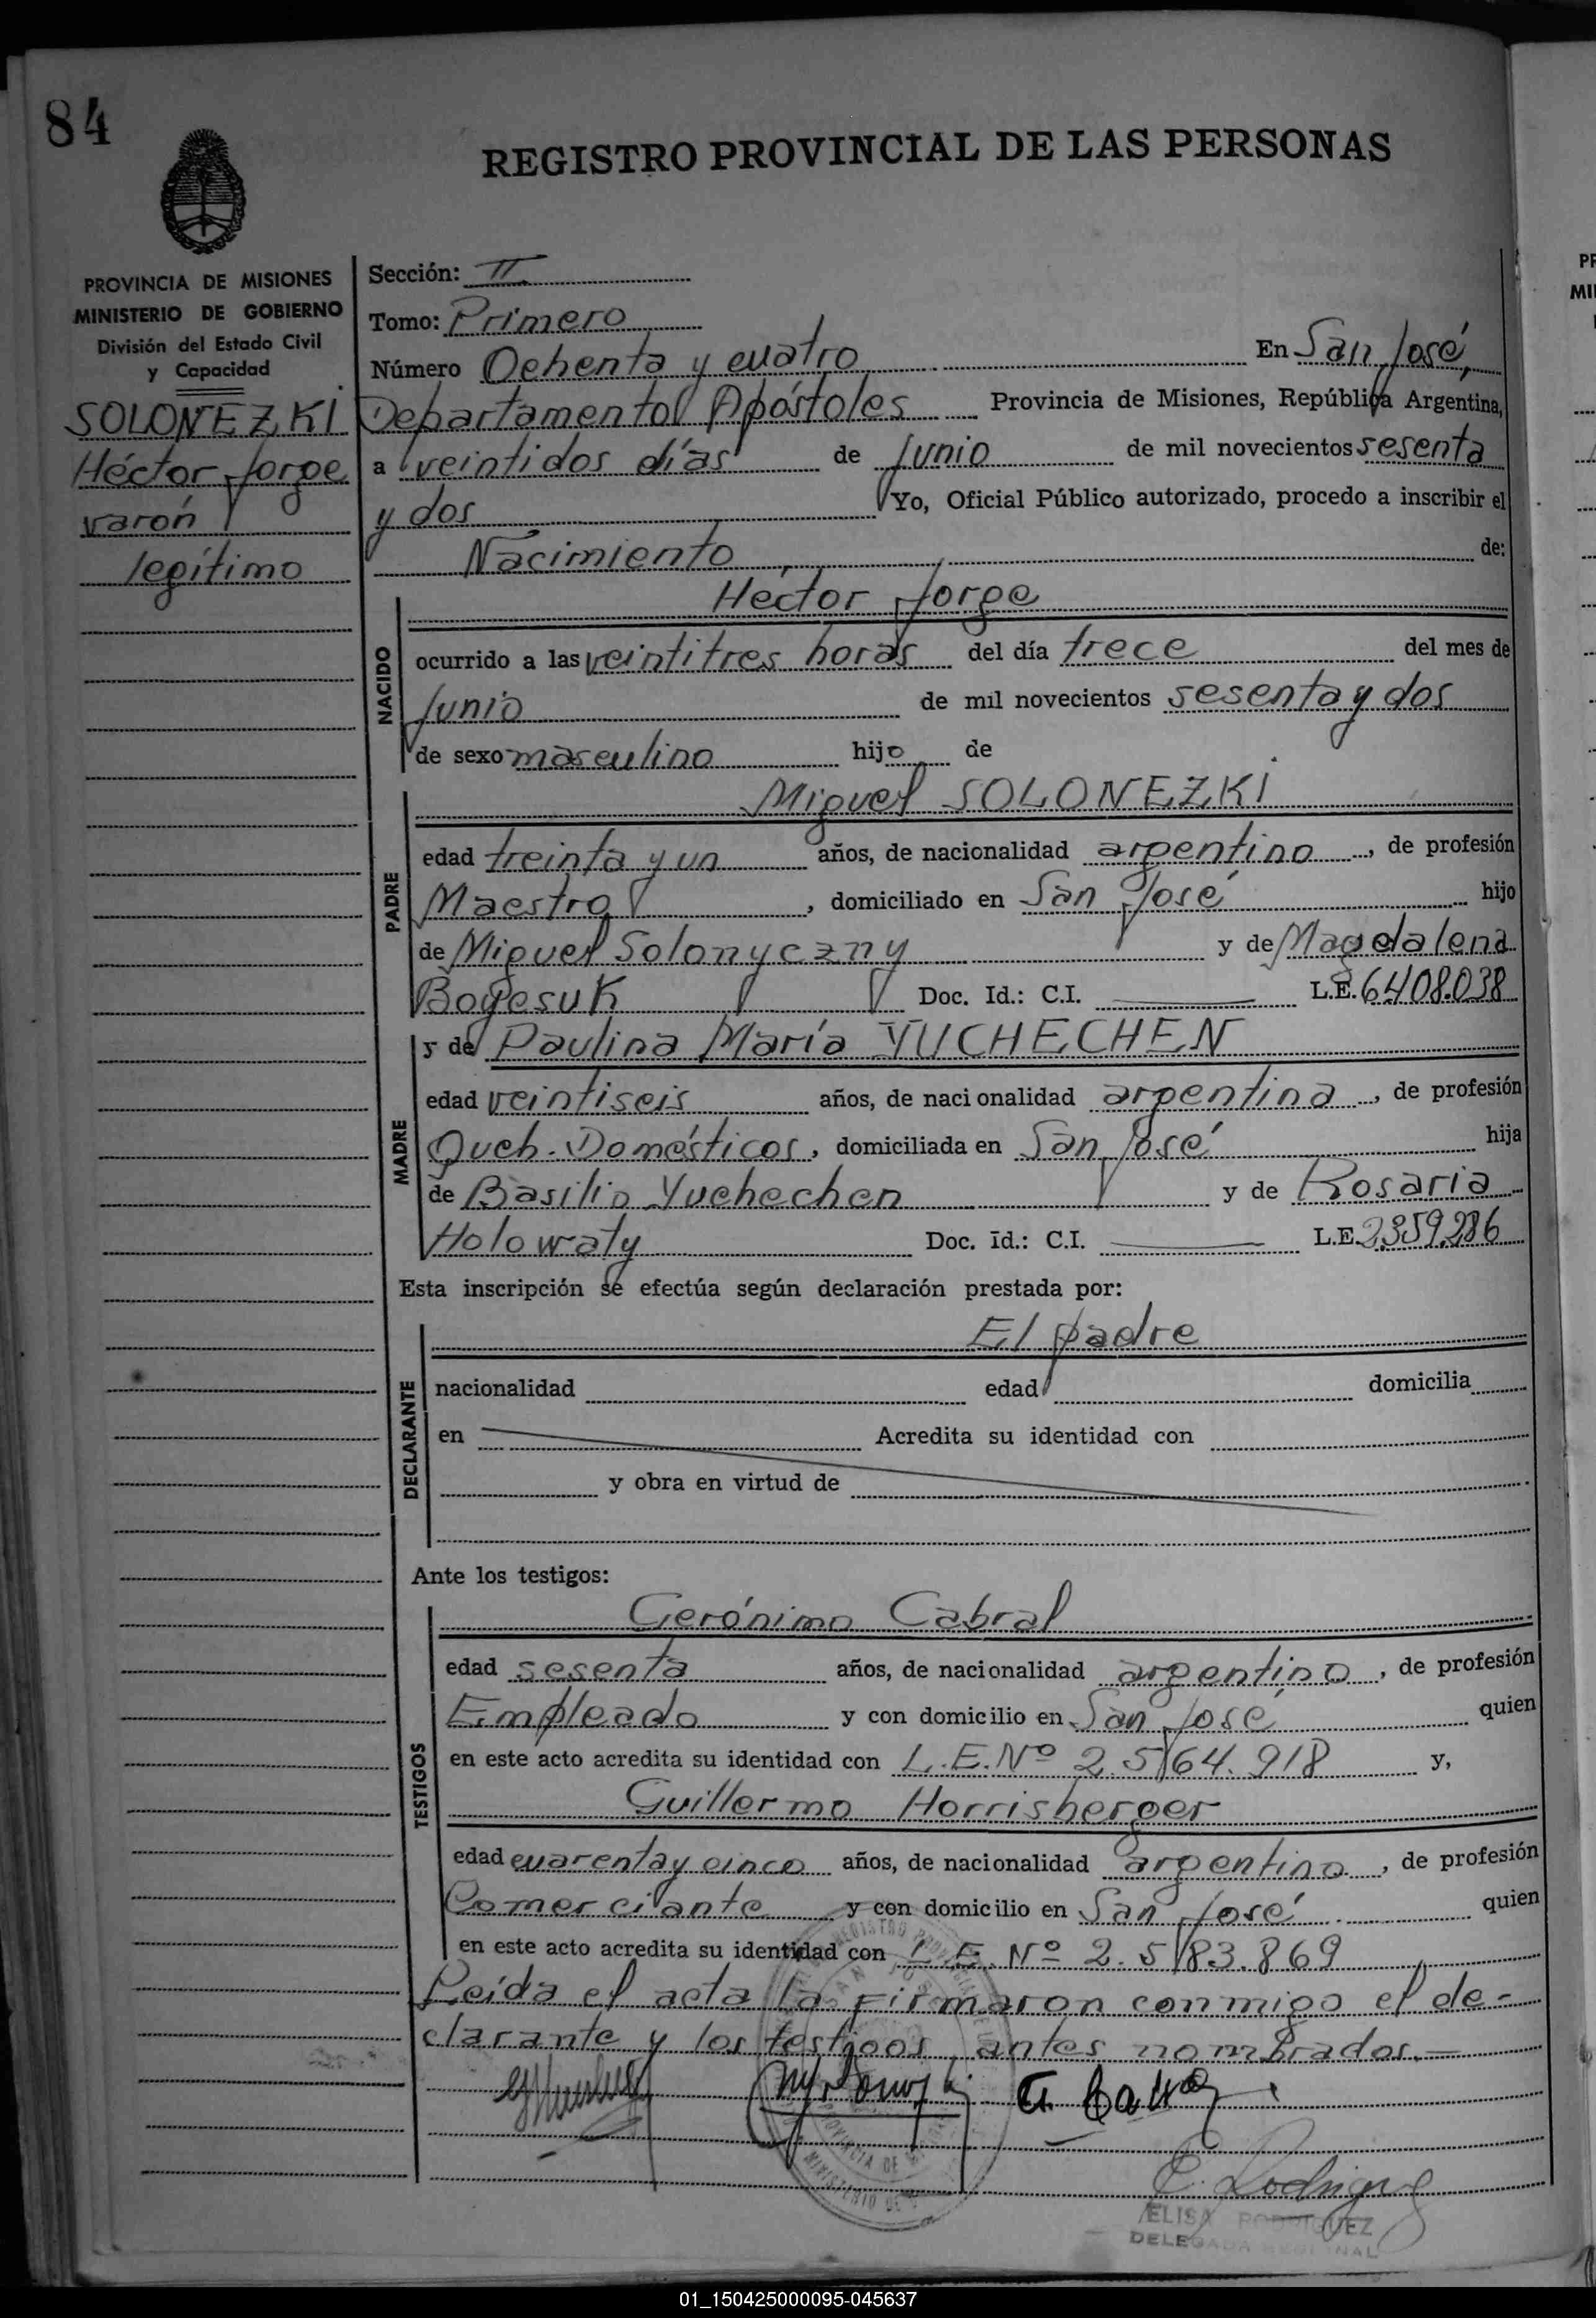 84
REGISTRO PROVINCIAL DE LAS PERSONAS
PROVINCIA DE MISIONES
MINISTERIO DE GOBIERNO
División del Estado Civil
y Capacidad
SOLONEZKI
Héctor Jorge
varón
legítimo
Sección: II
Tomo: Primero
Número Ochenta y cuatro En San José,
Departamental Apóstoles Provincia de Misiones, República Argentina,
a veintidos días de Junio de mil novecientos sesenta
y dos Yo, Oficial Público autorizado, procedo a inscribir el
Nacimiento de:
NACIDO
Héctor Jorge
ocurrido a las veintitres horas del día trece del mes de
Junio de mil novecientos sesenta y dos
de sexo masculino hijo de
PADRE
Miguel SOLONEZKI
edad treinta y un años, de nacionalidad argentino, de profesión
Maestro, domiciliado en San José hijo
de Miguel Solonyczny y de Magdalena
Boyesuk Doc. Id.: C.I. L.E. 6408.038
MADRE
y de Paulina María YUCHECHEN
edad veintiseis años, de nacionalidad argentina, de profesión
Queh. Domésticos, domiciliada en San José hija
de Basilio Yuchechen y de Rosaria
Holowaty Doc. Id.: C.I. L.E. 2359.286
Esta inscripción se efectúa según declaración prestada por:
DECLARANTE
El padre
nacionalidad edad domicilia
en Acredita su identidad con
y obra en virtud de
Ante los testigos:
TESTIGOS
Gerónimo Cabral
edad sesenta años, de nacionalidad argentino, de profesión
Empleado y con domicilio en San José quien
en este acto acredita su identidad con L.E. Nº 2.564.918 y,
Guillermo Horrisberger
edad cuarenta y cinco años, de nacionalidad argentino, de profesión
Comerciante y con domicilio en San José quien
en este acto acredita su identidad con L.E. Nº 2.583.869
Leída el acta la firmaron conmigo el de-
clarante y los testigos antes nombrados.—
E. Rodríguez
ELISA RODRIGUEZ
DELEGADA
01_150425000095-045637